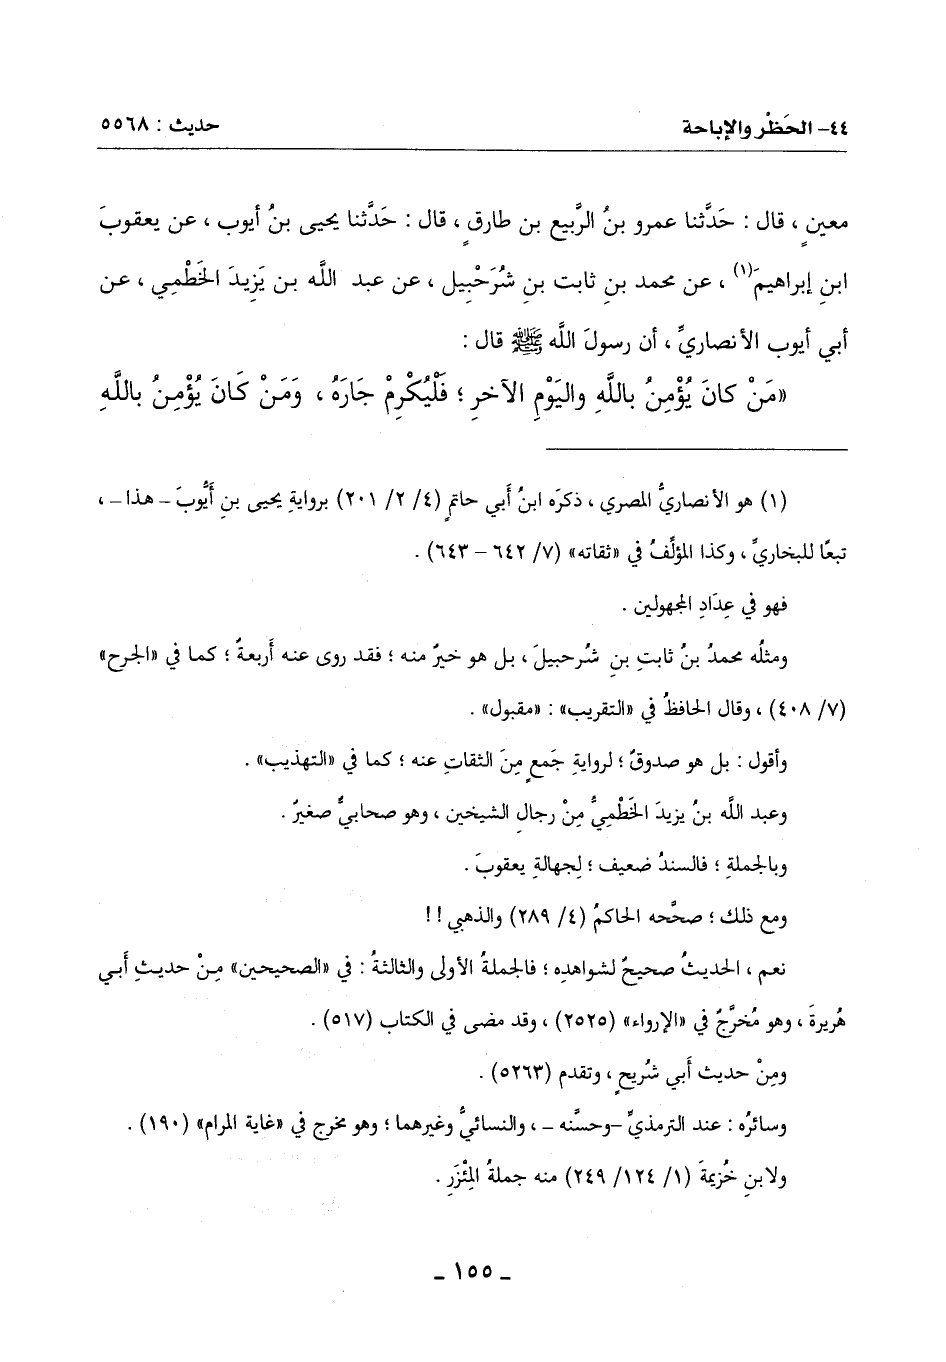 ٤٤- الحَظْر والإباحة حديث : ٥٥٦٨
معينٍ ، قال : حَدَّثنا عمرو بنُ الرَّبيع بن طارقٍ ، قال : حَدَّثنا يحيى بنُ أيوب ، عن يعقوبَ
ابنِ إبراهيمَ(١) ، عن محمد بن ثابت بنِ شُرَحْبيل ، عن عبد اللَّه بن يَزِيدَ الخَطْمِي ، عن
أبي أيوب الأنصاريِّ ، أن رسولَ اللَّه ﷺ قال :
«مَنْ كانَ يُؤْمِنُ باللَّهِ واليَوْمِ الآخرِ ؛ فَلْيُكْرِمْ جَارَهُ ، وَمَنْ كَانَ يُؤْمِنُ باللَّهِ
(١) هو الأنصاريُّ المصري ، ذكرَه ابنُ أبي حاتمٍ (٤/ ٢/ ٢٠١) بروايةِ يحيى بنِ أيُّوبَ ـ هذا ـ ،
تبعًا للبخاريِّ ، وكذا المؤلِّفُ في «ثقاته» (٧/ ٦٤٢ – ٦٤٣) .
فهو في عِدَادِ المجهولين .
ومثلُه محمدُ بنُ ثابتِ بنِ شُرحبيلَ ، بل هو خيرٌ منه ؛ فقد روى عنه أربعةٌ ؛ كما في «الجرح»
(٧/ ٤٠٨) ، وقال الحافظُ في «التقريب» : «مقبول» .
وأقول : بل هو صدوقٌ ؛ لروايةِ جَمعٍ مِنَ الثقاتِ عنه ؛ كما في «التهذيب» .
وعبد اللَّه بنُ يزيدَ الخَطْمِيُّ مِنْ رجالِ الشيخين ، وهو صحابيٌّ صغيرٌ .
وبالجملةِ ؛ فالسندُ ضعيف ؛ لِجهالةِ يعقوبَ .
ومع ذلك ؛ صحَّحه الحاكمُ (٤/ ٢٨٩) والذهبي !!
نعم ، الحديثُ صحيحٌ لشواهدِه ؛ فالجملةُ الأولى والثالثةُ : في «الصحيحين» مِنْ حديثِ أَبي
هُريرةَ ، وهو مُخرَّجٌ في «الإرواء» (٢٥٢٥) ، وقد مضى في الكتاب (٥١٧) .
ومِنْ حديث أبي شُريحٍ ، وتقدم (٥٢٦٣) .
وسائرُه : عند الترمذيِّ -وحسَّنه - ، والنسائيُّ وغيرهما ؛ وهو مخرج في «غاية المرام» (١٩٠) .
ولابنِ خُزيمةَ (١/ ١٢٤/ ٢٤٩) منه جملةُ المِئْزَرِ .
ـ ١٥٥ ـ